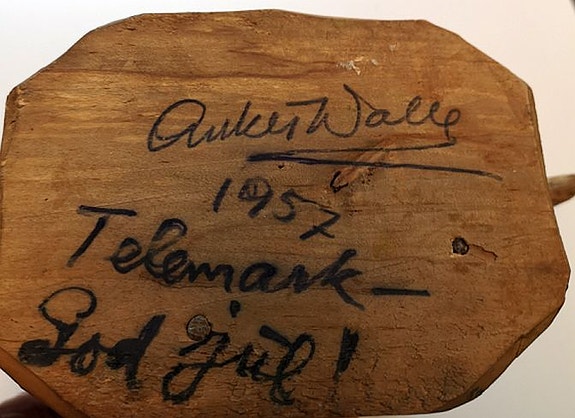 Anker Walle
1957
Telemark –
God Jul!